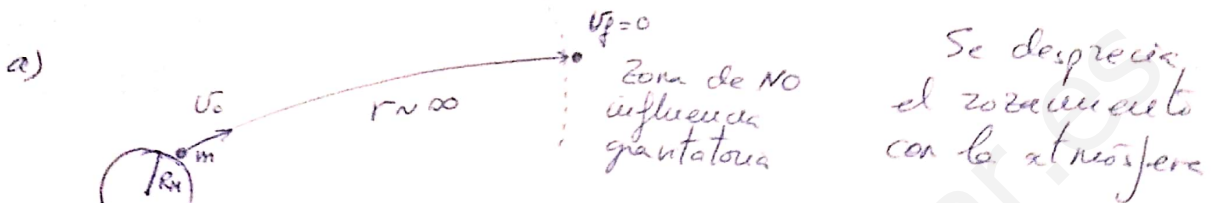 a)
v₀
m
R_M
r ~ ∞
v_f = 0
Zona de NO
influencia
gravitatoria
Se desprecia
el rozamiento
con la atmósfera